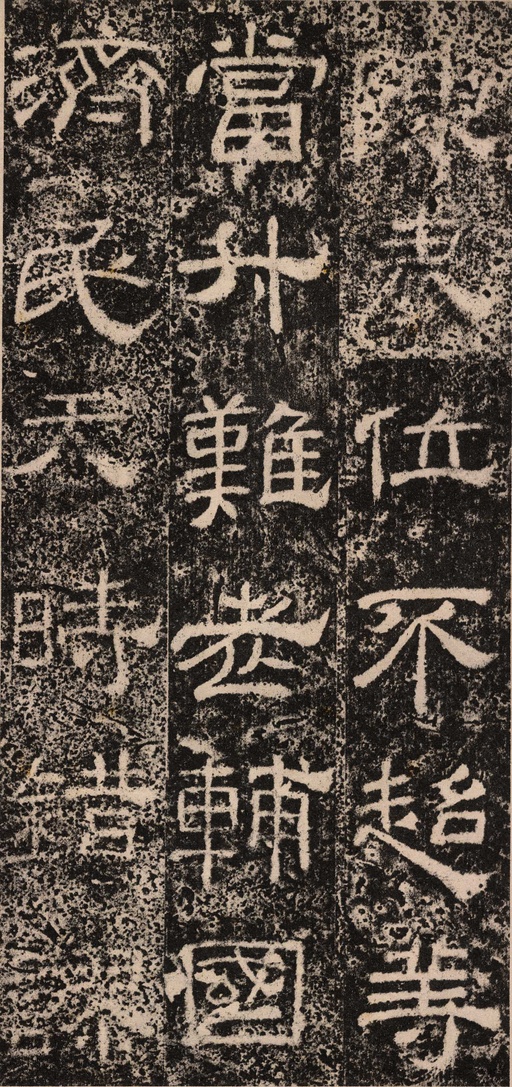 位不超等
當升難老輔國
濟民天時錯